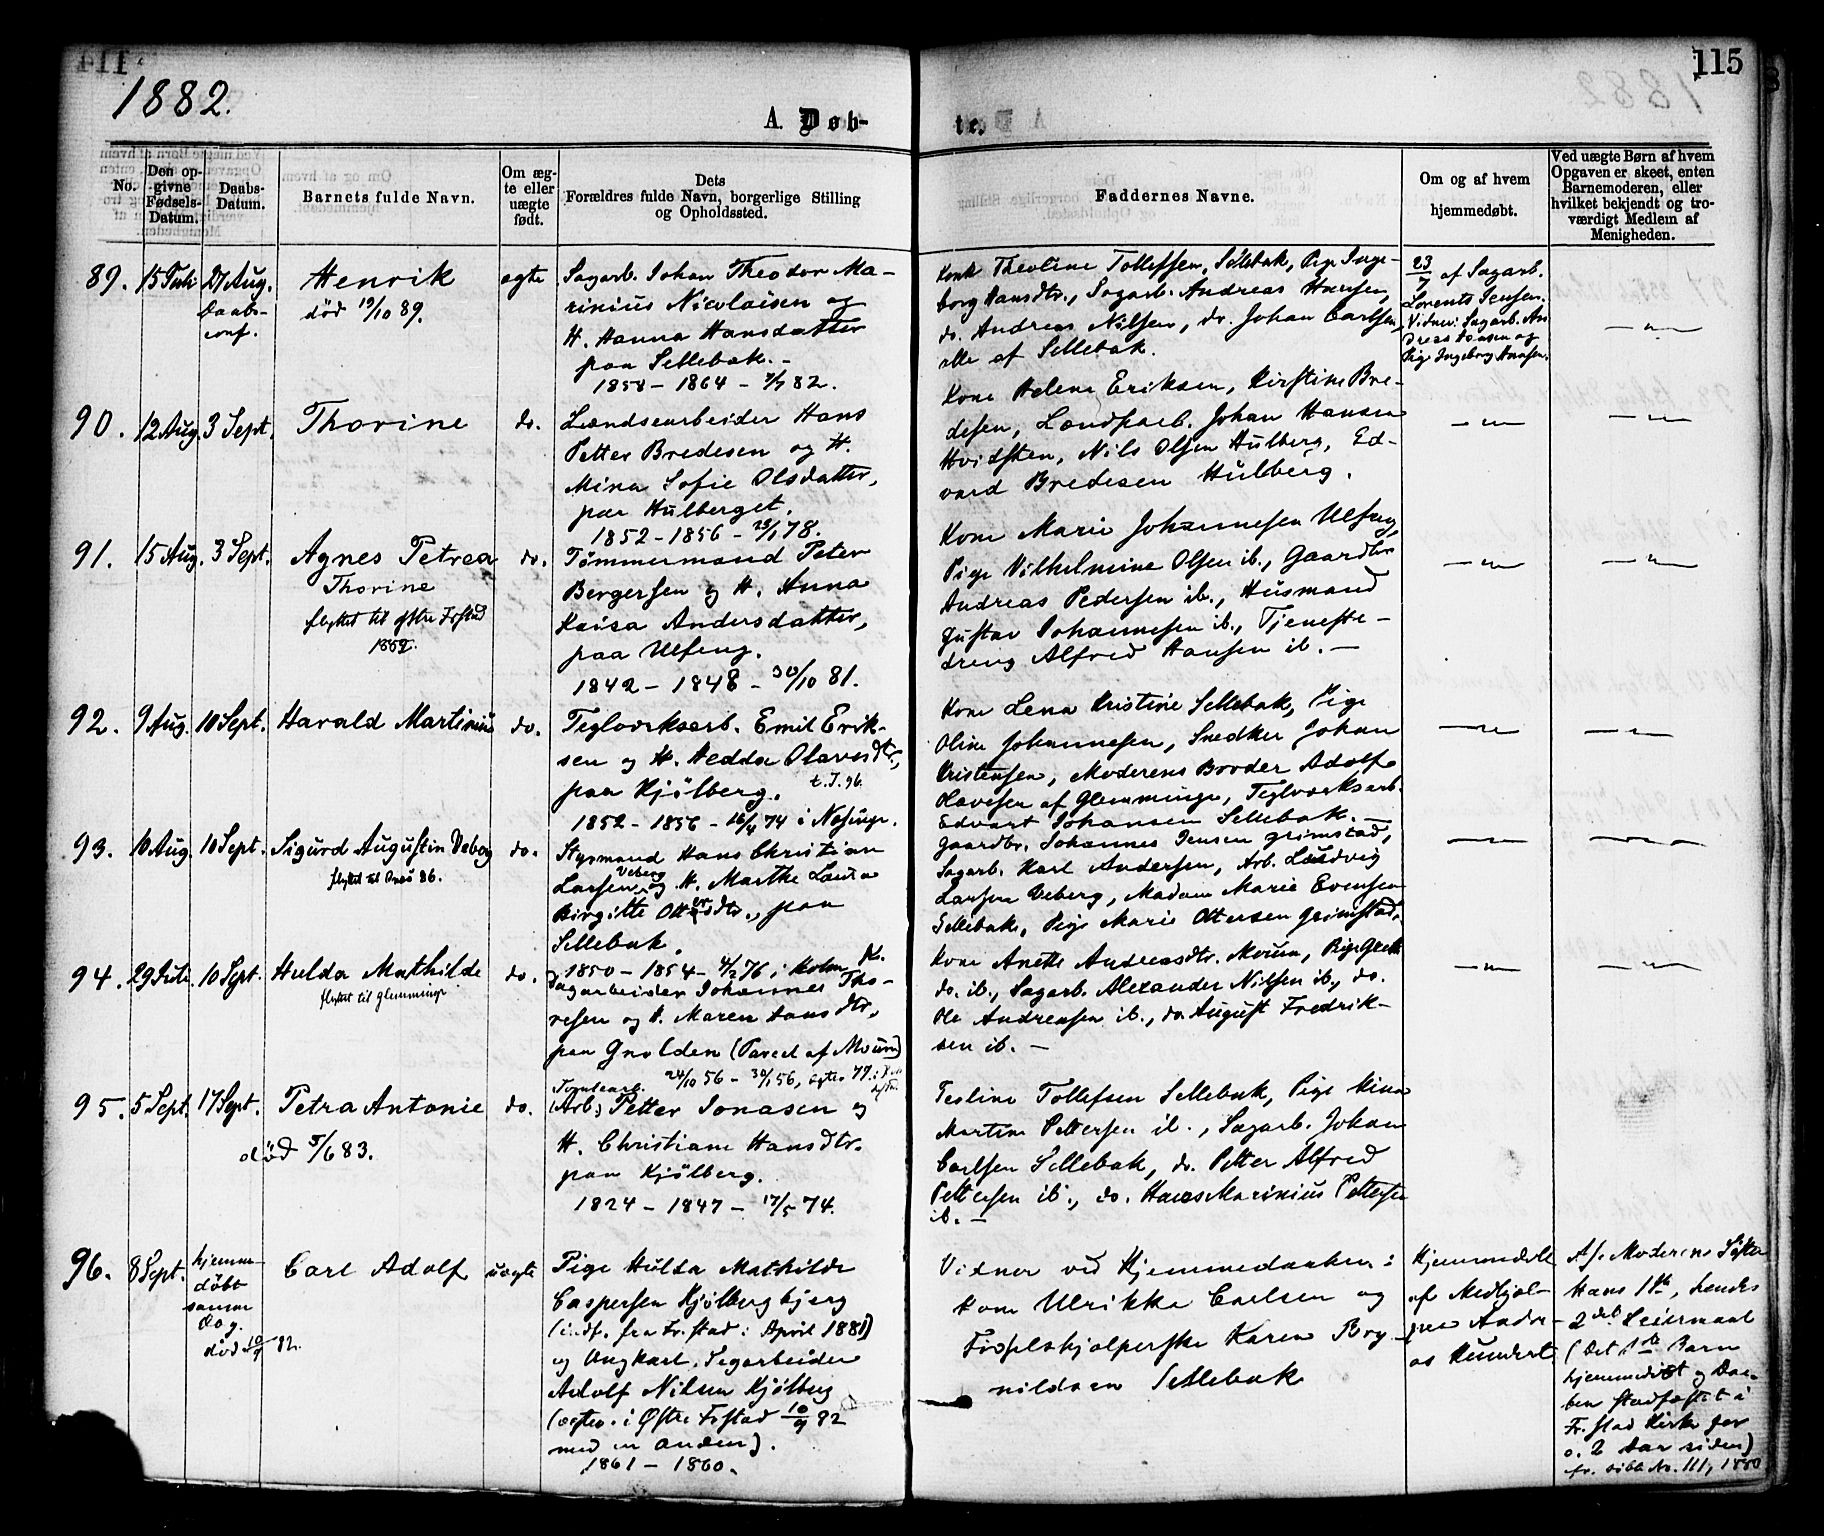 1882.
115
A. Døb-
te.
No.
Den op-
givne
Fødsels-
Datum.
Daabs-
Datum.
Barnets fulde Navn.
Om æg-
te eller
uægte
født.
Dets
Forældres fulde Navn, borgerlige Stilling
og Opholdssted.
Faddernes Navne.
Om og af hvem
hjemmedøbt.
Ved uægte Børn af hvem
Opgaven er skeet, enten
Barnemoderen, eller
hvilket bekjendt og tro-
værdigt Medlem af
Menigheden.
89. 15 Juli 27 Aug. Henrik ægte
Daabs-
conf.
død 19/10 89.
Sagarb. Johan Theodor Ma-
rinius Nicolaisen og
H. Hanna Hansdatter
paa Sellebak. -
1858 - 1864 - 82.
Theoline Tollefsen, Sellebak, Pige Inge-
borg Hansdtr., Sagarb. Andreas Hansen,
do. Andreas Nilsen, do. Johan Carlsen,
alle af Sellebak.
23/7 af Sagarb.
Lorents Jensen.
Vidner: Sagarb. An-
dreas Hansen og
Pige Ingeborg Hansen.
— " —
90. 12 Aug. 3 Sept. Thorine do.
Lændsearbeider Hans
Petter Bredesen og H.
Mina Sofie Olsdatter,
paa Hulberget.
1852 - 1856 - 78.
Kone Helene Eriksen, Kirstine Bre-
desen, Johan Hansen
Hvidsten, Nils Olsen Hulberg, Ed-
vard Bredesen Hulberg.
— " —
— " —
91. 15 Aug. 3 Sept. Agnes Petrea do.
Thorine
flyttet til østre Frstad
1882.
Tømmermand Peter
Bergersen og H. Anna
Kaisa Andersdatter,
paa Ulfeng.
1842 - 1848 - 30/10 81.
Kone Marie Johannesen Ulfeng,
Pige Vilhelmine Olsen ib., Gaardbr
Andreas Pedersen ib., Husmand
Gustav Johannesen ib., Tjeneste-
dreng Alfred Hansen ib. —
— " —
— " —
92. 9 Aug. 10 Sept. Harald Martinius do.
Teglverksarb. Emil Erik-
sen og H. Hedda Olavesdtr.,
paa Kjölberg. t. J. 96.
1852 - 1856 - 16/4 74 i
Kone Lena Kristine Sellebak, Pige
Oline Johannesen, Snedker Johan
Kristensen, Moderens Broder Adolf
Olavesen af Glemminge, Teglverksarb.
Edvart Johansen Sellebak. —
— " —
— " —
93. 10 Aug. 10 Sept. Sigurd Augustin Veberg do.
flyttet til 86.
Styrmand Hans Christian
Larsen Veberg og H. Marthe Laura
Birgitte Ottersdtr., paa
Sellebak.
1850 - 1854 - 4/2 76 i Holm. K.
Gaardbr. Johannes Jensen Grimstad,
Sagarb. Karl Andersen, Arb. Ludvig
Larsen Veberg, Madam Marie Evensen
Sellebak, Pige Marie Ottersen Grimstad.
— " —
— " —
94. 29 Juli 10 Sept. Hulda Mathilde do.
flyttet til Glemminge
Sagarbeider Johannes Tho-
resen og H. Maren Hansdtr.,
paa Gnolden (Parcel af Moum)
24/10 56 - 30/1 56, 77.
Kone Anette Andreasdtr. Moum, Pige
do. ib., Sagarb. Alexander Nilsen ib., do.
Ole Andreasen ib., do. August Fredrik-
sen ib. —
— " —
— " —
95. 5 Sept. 17 Sept. Petra Antonie do.
død 5/6 83.
(Arb.) Petter Jonasen og
H. Christiane Hansdtr.
paa Kjölberg.
1824 - 1847 - 17/5 74.
Teoline Tollefsen Sellebak, Pige Mina
Martine Pettersen ib., Sagarb. Johan
Carlsen Sellebak, do. Petter Alfred
Pettersen ib., do. Hans Marinius Pettersen
ib. —
96. 8 Sept. hjemme-
døbt
samme
Dag.
død 10/9 82.
Carl Adolf uægte
Pige Hulda Mathilde
Caspersen Kjölbergbjerg
(indf. fra Fr.stad i April 1881)
og Ungkarl, Sagarbeider
Adolf Nilsen Kjölberg
(ægtev. i Østre Frstad 10/9 82
med en anden).
1861 - 1860.
Vidner ved Hjemmedaaben:
Kone Ulrikke Carlsen og
Fødselshjælperske Karen Bry-
nildsen Sellebak
Hjemmedøbt
af Medhjæl-
per Andre-
as Kundert
Af Moderens Søster
Hans 1ste, hendes
2det Leiermaal
(Det 1ste Barn
hjemmedøbt og Daa-
ben stadfæstet i
Fr.stad Kirke for
c. 2 Aar siden)
No. 111, 1880